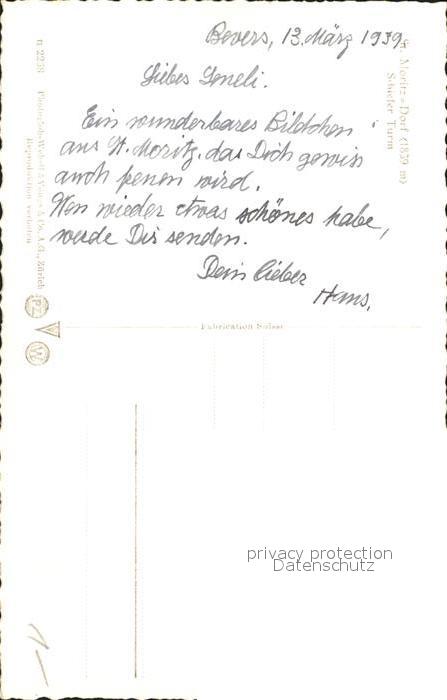 Bevers, 13. März 1939.
Liebes Leneli.
Ein wunderbares Bildchen
aus St. Moritz, das Dich gewiss
auch freuen wird.
Wen wieder etwas schönes habe,
werde Dir senden.
Dein lieber
Hans.
St. Moritz-Dorf (1839 m)
Schiefer Turm
n 2238
Photoglob-Wehrli & Vouga & Co. A.G., Zürich
Reproduktion verboten
PZ
V
W
Fabrication Suisse
privacy protection
Datenschutz
1-